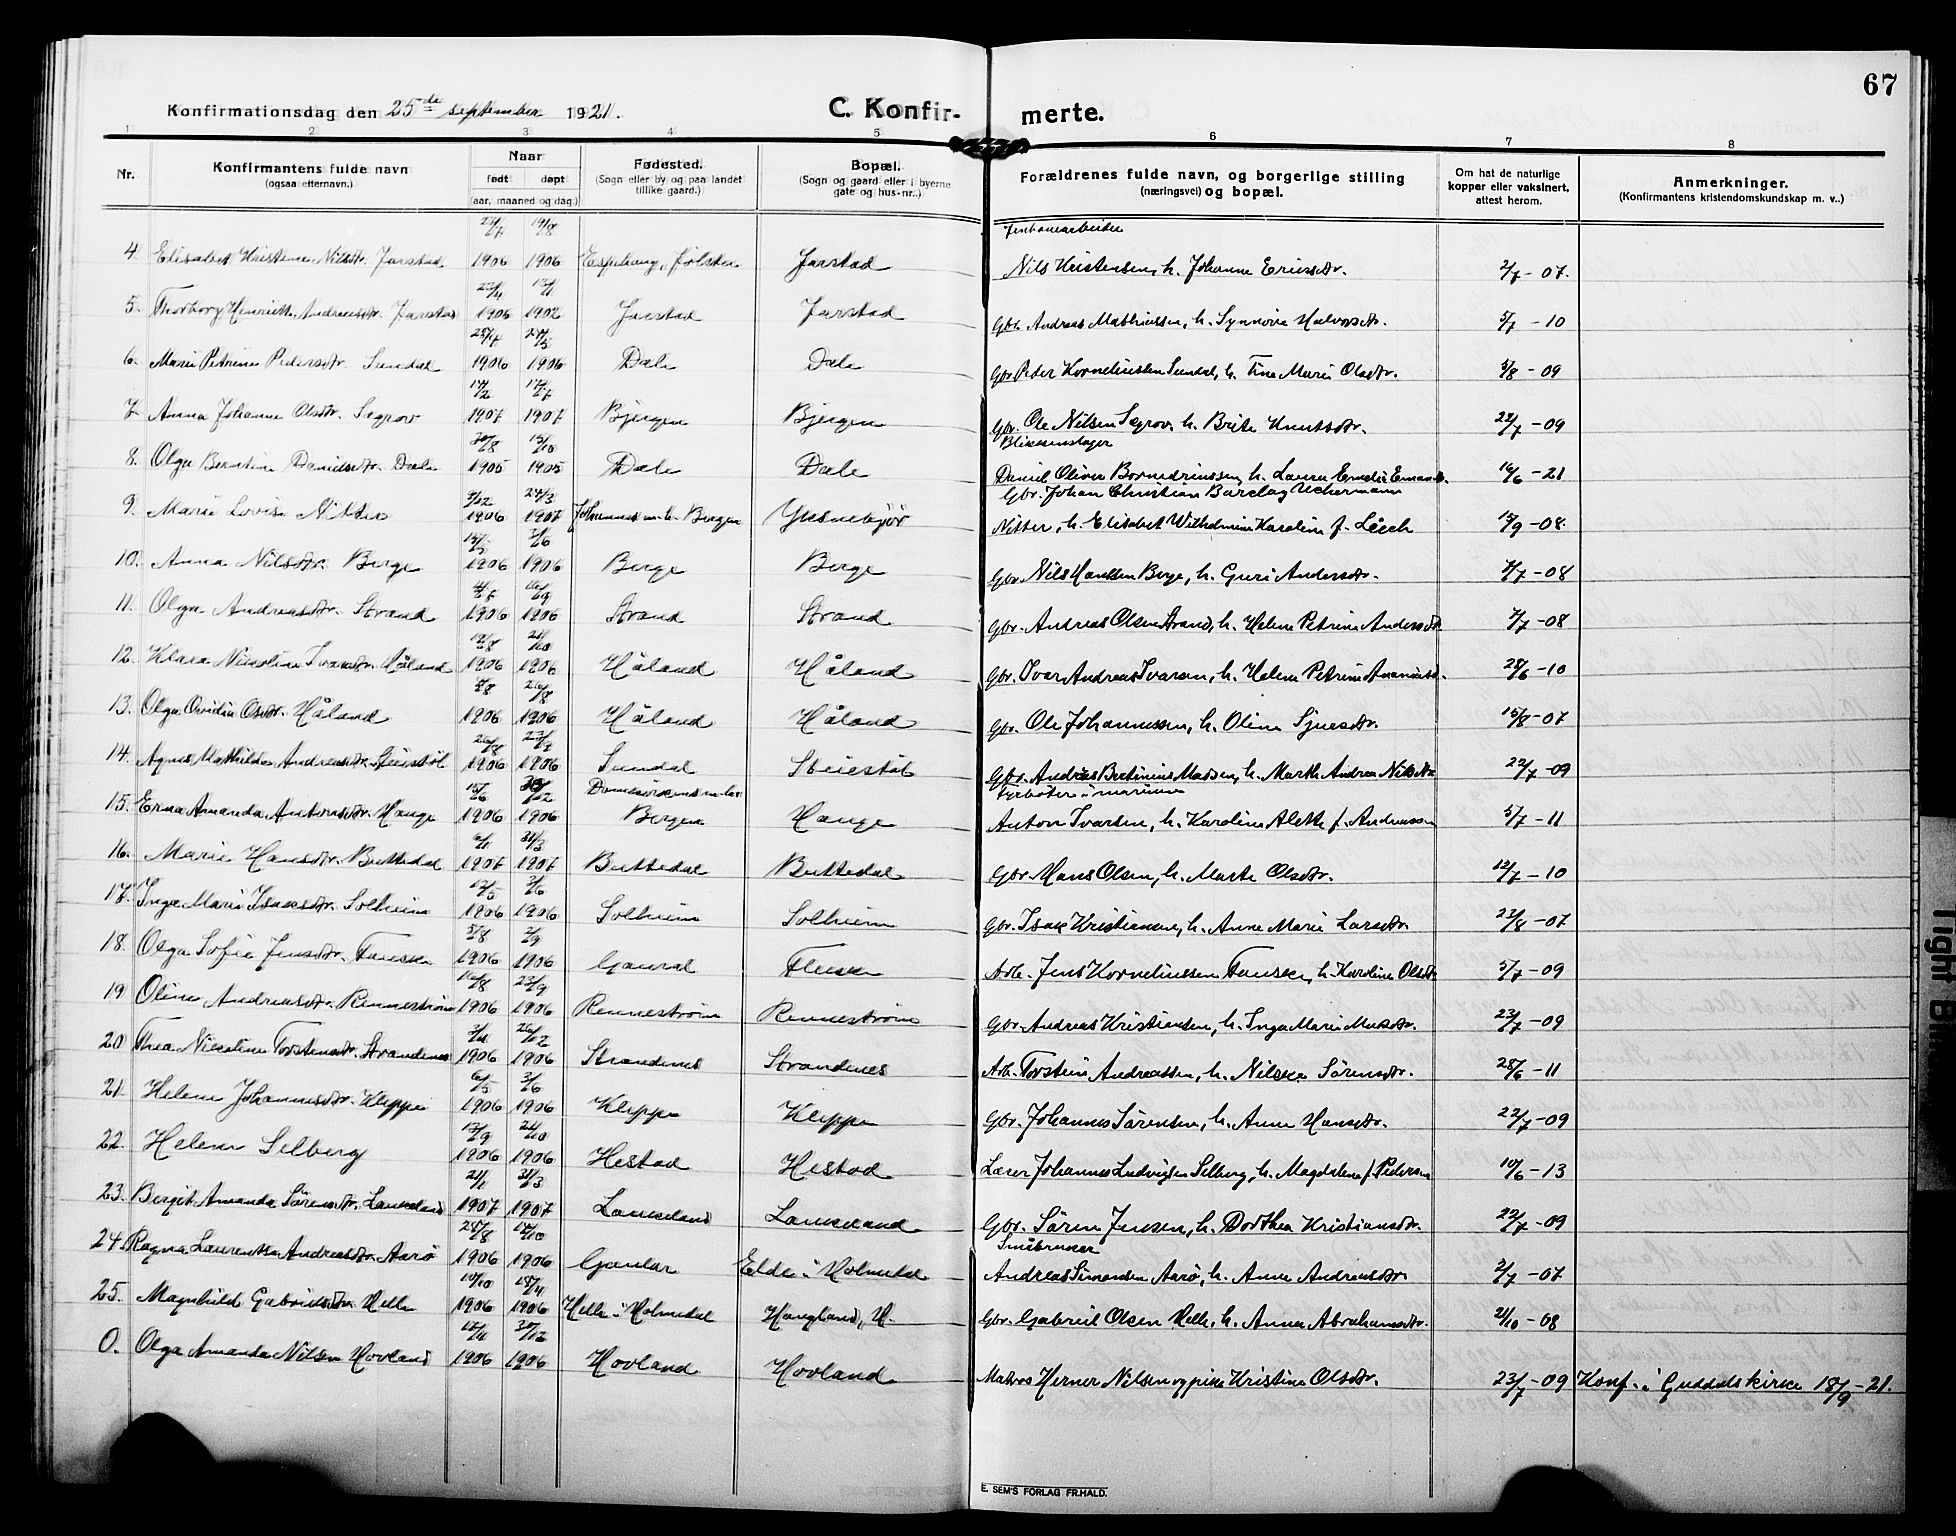 67
Konfirmationsdag den 25de september 1921.
C. Konfirmerte.
1 2 3 4 5 6 7 8
Nr. Konfirmantens fulde navn (ogsaa efternavn.) Naar født døpt (aar, maaned og dag.) Fødested. (Sogn eller by og paa landet tillike gaard.) Bopæl. (Sogn og gaard eller i byerne gate og hus-nr..) Forældrenes fulde navn, og borgerlige stilling (næringsvei) og bopæl. Om hat de naturlige kopper eller vaksinert, attest herom. Anmerkninger. (Konfirmantens kristendomskundskap m. v..)
4. Elisabet Kristine Nilsdtr. Jarstad 1906 19/8 1906 Jølster Jarstad Nils Kristensen, h. Johanne Ericsdtr. 2/7-07.
5. Thorborg Henriette Andreasdtr. Jarstad 1906 1906 Jarstad Jarstad Gbr. Andreas Mathiassen, h. Synnøve Halvorsdtr. 5/7-10
6. Marie Petrine Pedersdtr. Sundal 1906 1906 Dale Dale Gbr. Peder Korneliussen Sundal, h. Tine Marie Olsdtr. 5/8-09
7. Anna Johanne Olsdtr. Segrov 14/2 1907 1907 Bjergen Bjergen Gbr. Ole Nilsen Segrov, h. Brite Knutsdtr. 22/7-09
8. Olga Berntine Danielsdtr. Dale 30/8 1905 15/10 1905 Dale Dale Blikkenslager Daniel Oliver h. Laura Emelie 16/6-21
9. Marie Lovise Nitter 9/12 1906 24/3 1907 Johannes m. h. Bergen Yksnebjør Gbr. Johan Christian Barclay Uchermann Nitter, h. Elisabet Wilhelmine Karoline f. Lèech 15/9-08.
10. Anna Nilsdtr. Berge 15/5 1906 3/6 1906 Berge Berge Gbr. Nils Hansen Berge, h. Guri Andersdtr. 7/7-08
11. Olga Andreasdtr. Strand 1906 16/9 1906 Strand Strand Gbr. Andreas Olsen Strand, h. Helene Petrine Andersdtr. 7/7-08
12. Klara Nikoline Ivarsdtr. Håland 12/8 1906 21/10 1906 Håland Håland Gbr. Ivar Andreas Ivarsen, h. Helene Petrine 28/6-10
13. Olga Ovidia Olsdtr. Håland 5/8 1906 26/8 1906 Håland Håland Gbr. Ole Johannessen, h. Oline Sjursdtr. 15/8-07
14. Agnes Mathilde Andreasdtr. Steiestøl 26/8 1906 23/9 1906 Sundal Steiestøl Gbr. Andreas Bertinius Madsen, h. Marthe Andrea Nilsdtr. 22/7-09
15. Erna Amanda Antonsdtr. Hauge 15/6 1906 30/12 1906 Bergen Hauge Fyrbøter i marinen Anton Ivarsen, h. Karoline Alette f. Andreassen 5/7-11
16. Marie Hansdtr. Buttedal 6/1 1907 31/3 1907 Buttedal Buttedal Gbr. Hans Olsen, h. Marte Olsdtr. 12/7-10
17. Inga Marie Isaksdtr. Solheim 13/5 1906 3/6 1906 Solheim Solheim Gbr. Isak Kristiansen, h. Anne Marie Larsdtr. 23/8-07
18. Olga Sofie Jensdtr. Fauske 5/8 1906 2/9 1906 Gaular Fleske Arb. Jens Korneliussen Fauske, h. Karoline Olsdtr. 5/7-09
19 Oline Andreasdtr. Rennestrøm 16/8 1906 23/9 1906 Rennestrøm Rennestrøm Gbr. Andreas Kristiansen, h. Inga Marie 23/7-09
20 Thea Nikoline Torsteinsdtr. Strandenes 3/11 1906 26/12 1906 Strandenes Strandenes Arb. Torstein Andreassen, h. Nilske Sørensdtr. 28/6-11
21. Helene Johannesdtr. Kleppe 6/5 1906 3/6 1906 Kleppe Kleppe Gbr. Johannes Sørensen, h. Anne Hansdtr. 22/7-09
22. Helene Selberg 13/9 1906 21/10 1906 Hestad Hestad Lærer Johannes Ludvigsen Selberg, h. Magdalene f. Pedersen 10/6-13
23. Bergit Amanda Sørensdtr. Laukeland 21/1 1907 31/3 1907 Laukeland Laukeland Gbr. Søren Jensen, h. Dorthea Kristiansdtr. 22/7-09
24. Ragna Laurentse Andreasdtr. Aarø 28/8 1906 14/10 1906 Gaular Elde i Holmedal Småbruker Andreas Simonsen Aarø, h. Anna Andreasdtr. 2/7-07
25. Magnhild Gabrielsdtr. Helle 10/10 1906 1906 Helle i Holmedal Haugland, H. Gbr. Gabriel Olsen Helle, h. Anna Abrahamsdtr. 21/10-08
0. Olga Amanda Nilsen Hovland 17/11 1906 30/12 1906 Hovland Hovland Matros Herner Nilsen og pike Kristine Olsdtr. 23/7-09 Konf. i Guddals kirke 18/9-21.
E. SEM'S FORLAG FR.HALD.
Tight Bin